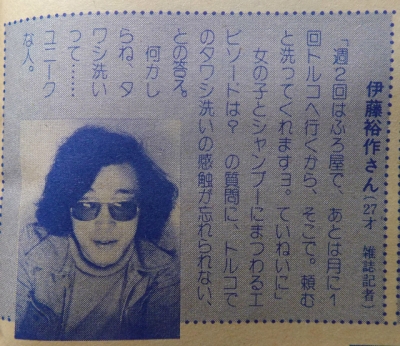 伊藤裕作さん(27才 雑誌記者)
「週2回はふろ屋で、あとは月に1
回トルコへ行くから、そこで。頼む
と洗ってくれますヨ。ていねいに」
女の子とシャンプーにまつわるエ
ピソードは? の質問に、トルコで
のタワシ洗いの感触が忘れられない、
との答え。
何かし
らね、タ
ワシ洗い
って……
ユニーク
な人。